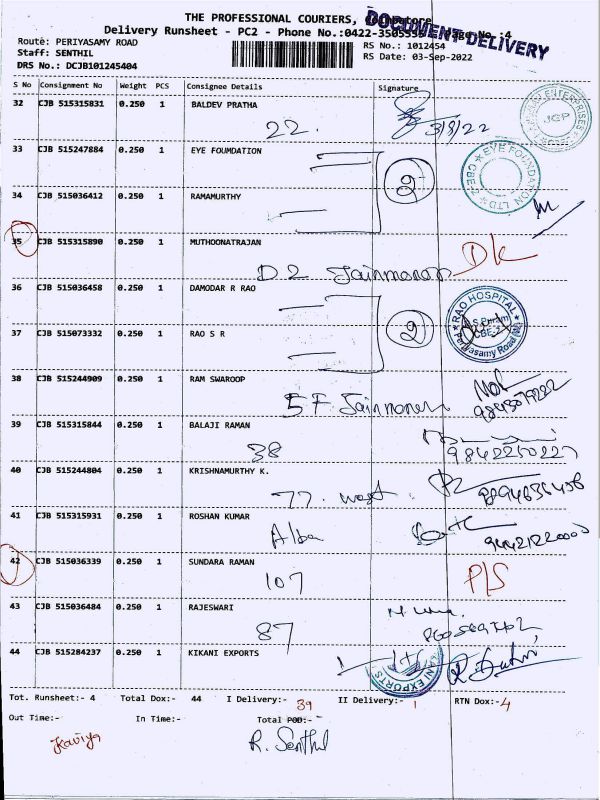 THE PROFESSIONAL COURIERS, Coimbatore
DOCUMENT DELIVERY
Delivery Runsheet - PC2 - Phone No.:0422-3505555 Page No :4
Route: PERIYASAMY ROAD
RS No.: 1012454
Staff: SENTHIL
RS Date: 03-Sep-2022
DRS No.: DCJB101245404
S No Consignment No Weight PCS Consignee Details Signature
32 CJB 515315831 0.250 1 BALDEV PRATHA
22. 3/8/22
JGP ENTERPRISES
33 CJB 515247884 0.250 1 EYE FOUNDATION
2
EYE FOUNDATION LTD CBE-2
34 CJB 515036412 0.250 1 RAMAMURTHY
35 CJB 515315890 0.250 1 MUTHOONATRAJAN
D2 Jainmonan DK
36 CJB 515036458 0.250 1 DAMODAR R RAO
2
RAO HOSPITAL
Periyasamy Road
37 CJB 515073332 0.250 1 RAO S R
38 CJB 515244909 0.250 1 RAM SWAROOP
5F Jainmonan
39 CJB 515315844 0.250 1 BALAJI RAMAN
38 9842250227
40 CJB 515244804 0.250 1 KRISHNAMURTHY K.
77. west
41 CJB 515315931 0.250 1 ROSHAN KUMAR
Alba
42 CJB 515036339 0.250 1 SUNDARA RAMAN
107 P/S
43 CJB 515036484 0.250 1 RAJESWARI
87
44 CJB 515284237 0.250 1 KIKANI EXPORTS
KANI EXPORTS
Tot. Runsheet:- 4 Total Dox:- 44 I Delivery:- 39 II Delivery:- 1 RTN Dox:- 4
Out Time:- In Time:- Total POD:-
Kaviya R. Senthil